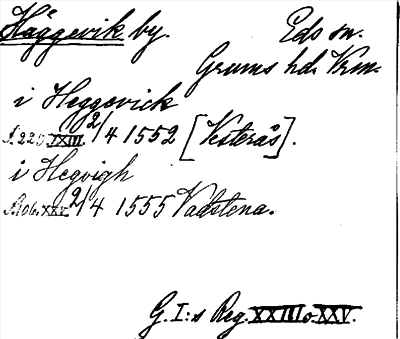 Häggevik by. Eds sn.
Grums hd. Vrm.
i Heggevick
S. 225 XXIII 2/4 1552 [Vesterås].
i Hegvigh
S. 106. XXV 2/4 1555 Vadstena.
G. I:s Reg. XXIII o XXV.